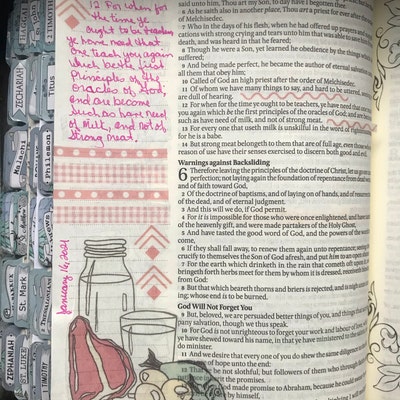 12 For when for
the time ye
ought to be teachers
ye have need that
one teach you again
which be the first
principles of the
oracles of God,
and are become
such as have need
of Milk, and not of
strong meat.
January 16, 2021
HAGGAI
ZECHARIAH
Malachi
St. Mark
ZEPHANIAH
Titus
Philemon
1 TIMOTHY
said unto him, Thou art my Son, to day have I begotten thee.
6 As he saith also in another place, Thou art a priest for ever after the
of Melchisedec.
7 Who in the days of his flesh, when he had offered up prayers and
cations with strong crying and tears unto him that was able
death, and was heard in that he feared;
8 Though he were a Son, yet learned he obedience by the things
suffered;
9 And being made perfect, he became the author of eternal
all them that obey him;
10 Called of God an high priest after the order of Melchisedec.
11 Of whom we have many things to say, and hard to be uttered,
are dull of hearing.
12 For when for the time ye ought to be teachers, ye have need that one
you again which be the first principles of the oracles of God; and are
such as have need of milk, and not of strong meat.
13 For every one that useth milk is unskilful in the word of
for he is a babe.
14 But strong meat belongeth to them that are of full age, even those
reason of use have their senses exercised to discern both good and evil.
Warnings against Backsliding
6 Therefore leaving the principles of the doctrine of Christ, let us go
perfection; not laying again the foundation of repentance from dead
and of faith toward God,
2 Of the doctrine of baptisms, and of laying on of hands, and of resurrection
of the dead, and of eternal judgment.
3 And this will we do, if God permit.
4 For it is impossible for those who were once enlightened, and have
of the heavenly gift, and were made partakers of the Holy Ghost,
5 And have tasted the good word of God, and the powers of the
come,
6 If they shall fall away, to renew them again unto repentance; seeing
crucify to themselves the Son of God afresh, and put him to an open
7 For the earth which drinketh in the rain that cometh oft upon it,
bringeth forth herbs meet for them by whom it is dressed, receiveth
from God:
8 But that which beareth thorns and briers is rejected, and is nigh unto
ing; whose end is to be burned.
God Will Not Forget You
9 But, beloved, we are persuaded better things of you, and things that
pany salvation, though we thus speak.
10 For God is not unrighteous to forget your work and labour of love,
ye have shewed toward his name, in that ye have ministered to the saints,
minister.
11 And we desire that every one of you do shew the same diligence
of hope unto the end:
12 That ye be not slothful, but followers of them who through
inherit the promises.
God made promise to Abraham, because he could
by himself,